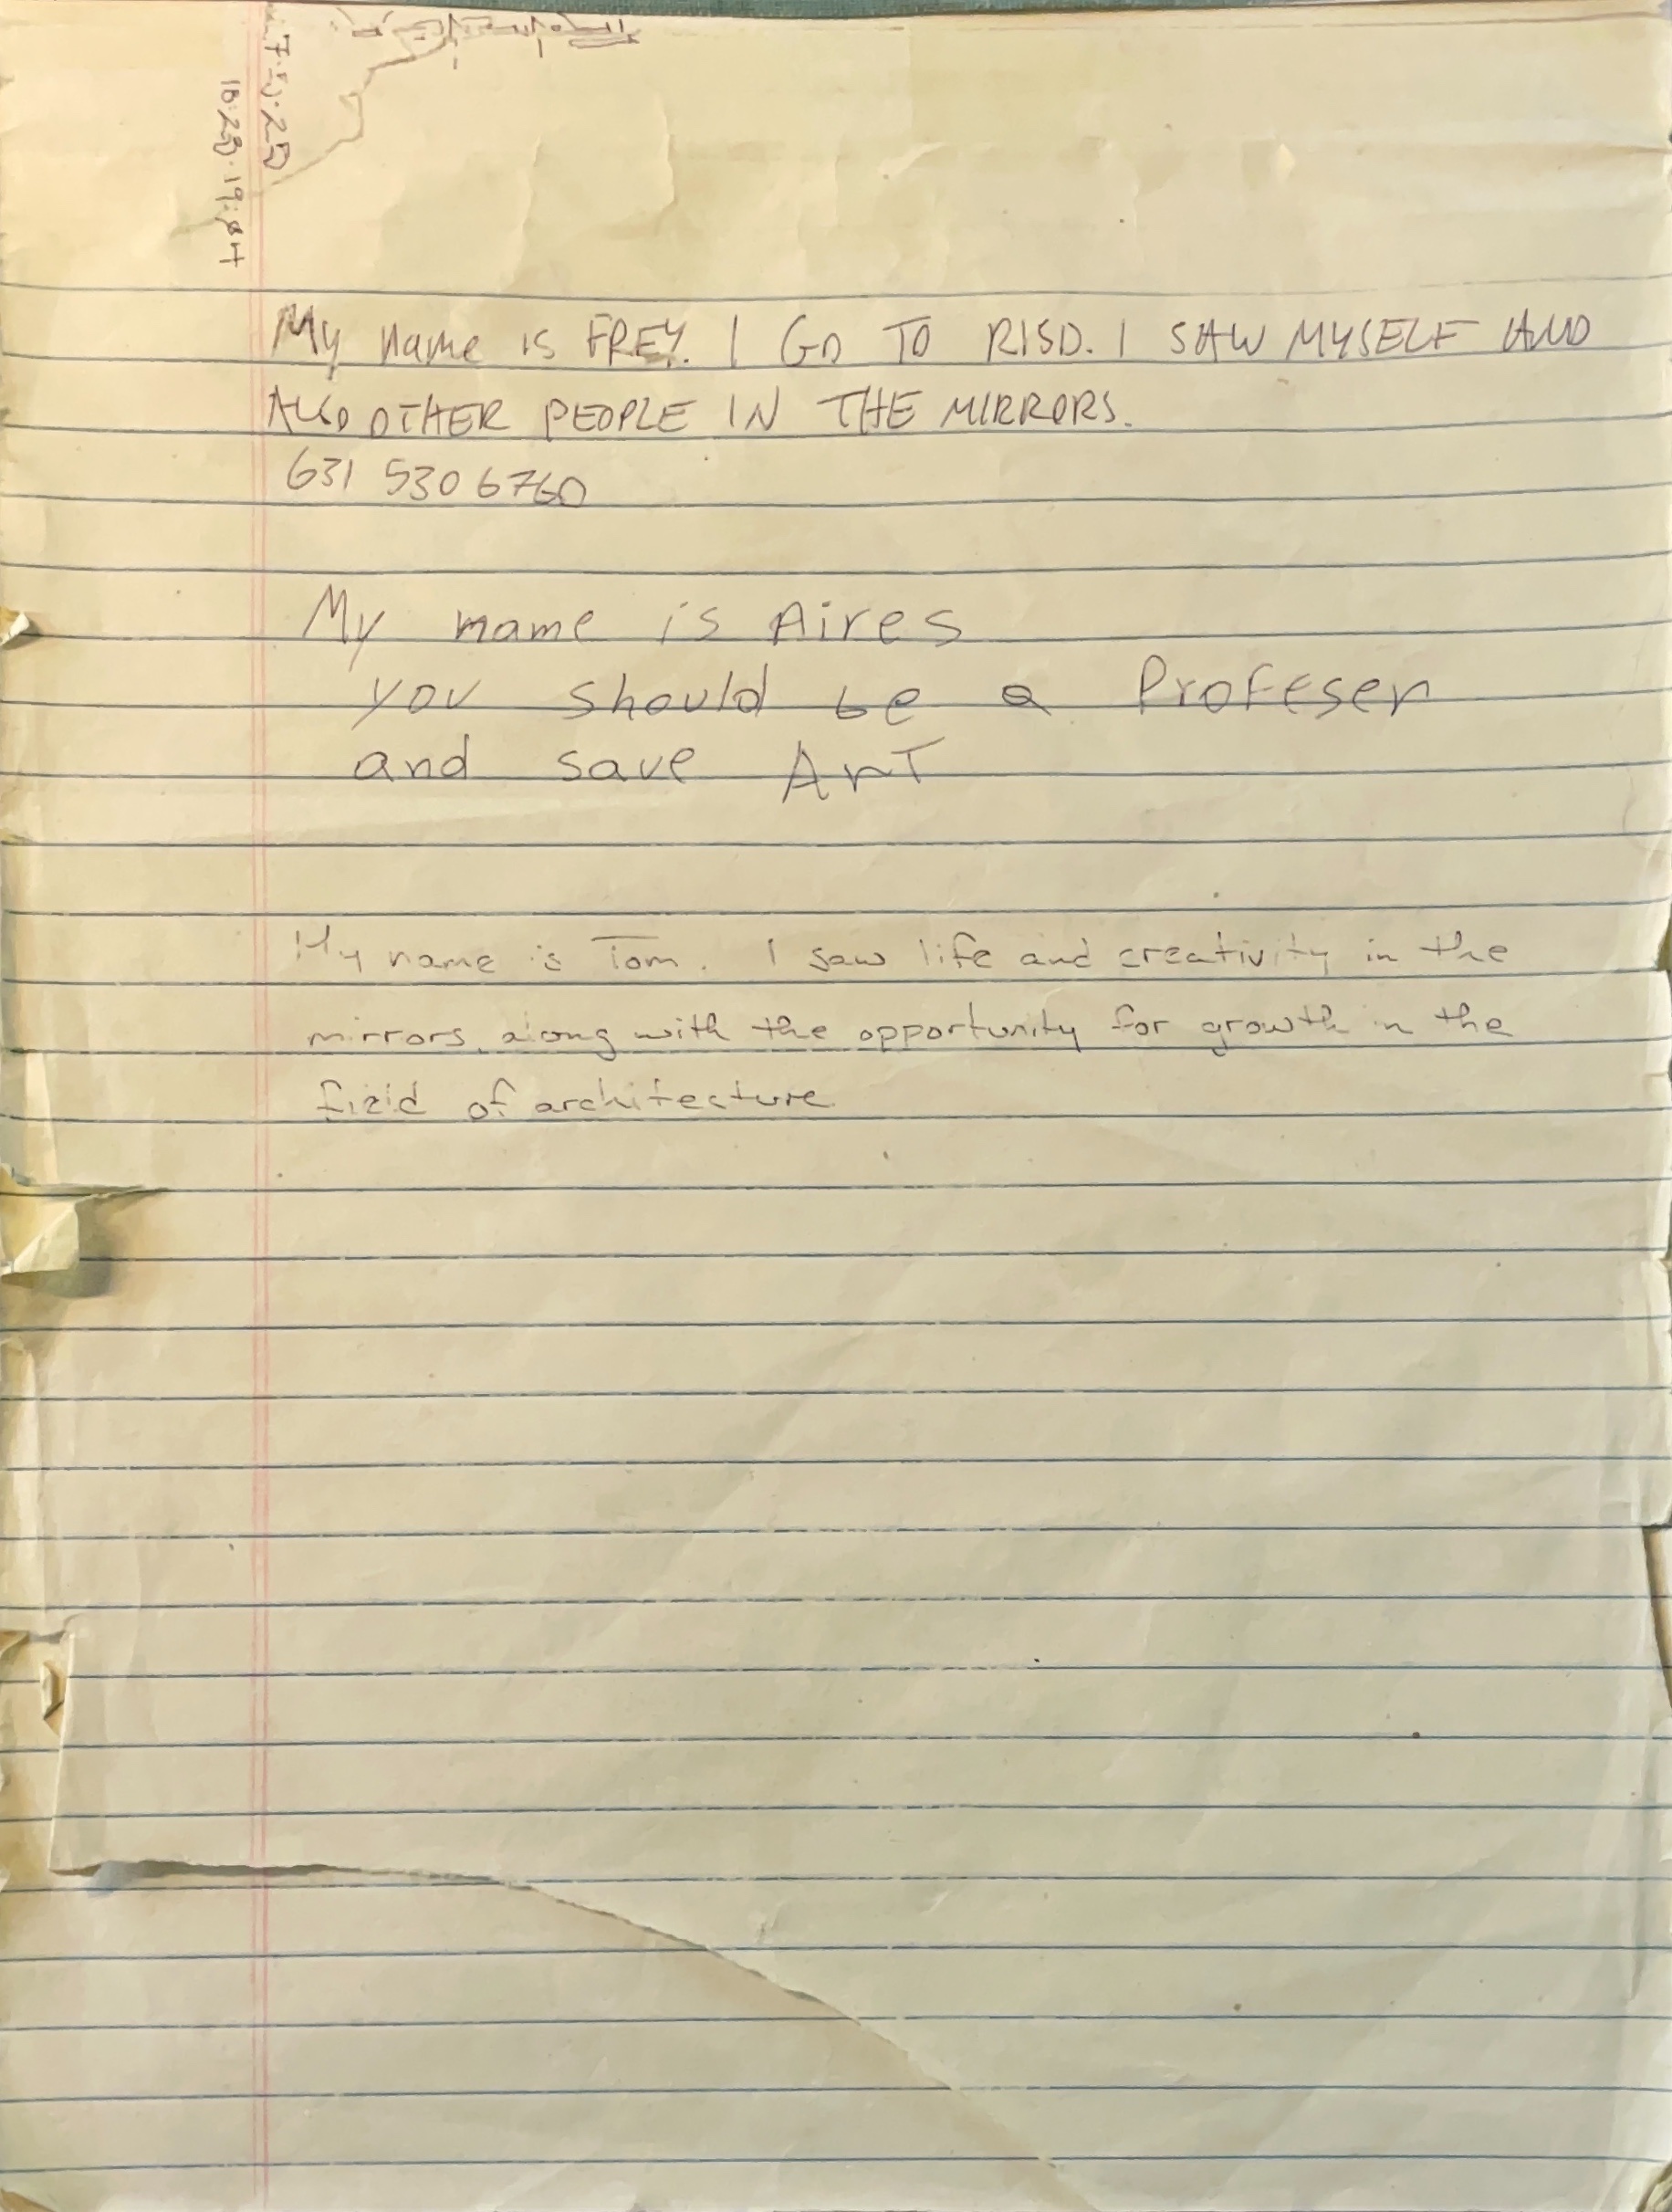 My name is FREY. I GO TO RISD. I SAW MYSELF AND
ALSO OTHER PEOPLE IN THE MIRRORS.
631 530 6760
My name is Aires
you should be a Profeser
and save ArT
My name is Tom. I saw life and creativity in the
mirrors, along with the opportunity for growth in the
field of architecture